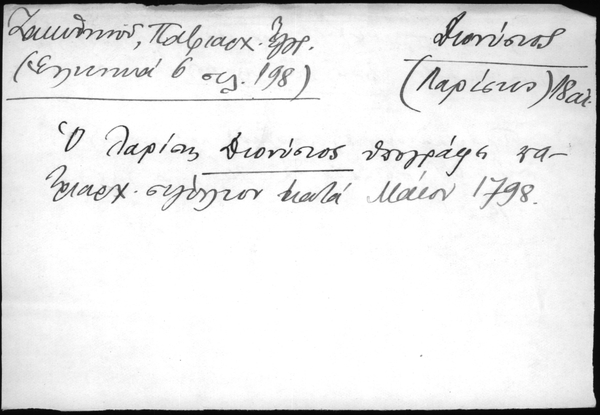 Ζακυθηνοῦ, Πατριαρχ. Ἔγγ.
(Ἑλληνικά 6 σελ. 198)
Διονύσιος
(Λαρίσης) 18 αἰ.
Ὁ Λαρίσης Διονύσιος ὑπογράφει πα-
τριαρχ. σιγίλλιον κατά Μάϊον 1798.